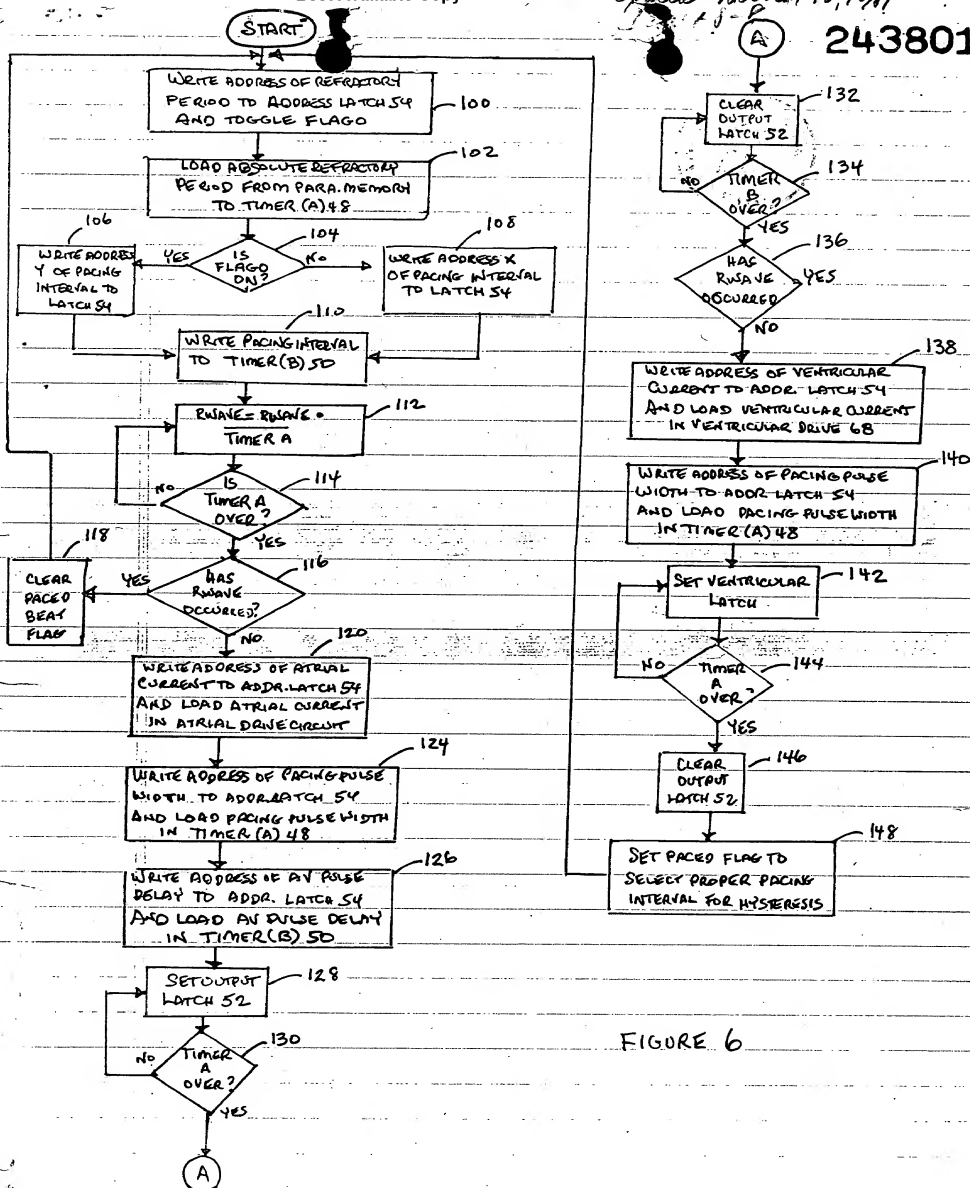 START
WRITE ADDRESS OF REFRACTORY
PERIOD TO ADDRESS LATCH 54
AND TOGGLE FLAGO
100
LOAD ABSOLUTE REFRACTORY
PERIOD FROM PARA. MEMORY
TO TIMER (A) 48
102
IS
FLAGO
ON?
104
YES
NO
106
WRITE ADDRESS
Y OF PACING
INTERVAL TO
LATCH 54
108
WRITE ADDRESS X
OF PACING INTERVAL
TO LATCH 54
110
WRITE PACING INTERVAL
TO TIMER (B) 50
RWAVE = RWAVE •
TIMER A
112
IS
TIMER A
OVER?
114
NO
YES
HAS
RWAVE
OCCURRED?
116
YES
NO
118
CLEAR
PACED
BEAT
FLAG
120
WRITE ADDRESS OF ATRIAL
CURRENT TO ADDR. LATCH 54
AND LOAD ATRIAL CURRENT
IN ATRIAL DRIVE CIRCUIT
124
WRITE ADDRESS OF PACING PULSE
WIDTH TO ADDR. LATCH 54
AND LOAD PACING PULSE WIDTH
IN TIMER (A) 48
126
WRITE ADDRESS OF AV PULSE
DELAY TO ADDR. LATCH 54
AND LOAD AV PULSE DELAY
IN TIMER (B) 50
SET OUTPUT
LATCH 52
128
TIMER
A
OVER?
130
NO
YES
A
A
243801
CLEAR
OUTPUT
LATCH 52
132
TIMER
B
OVER?
134
NO
YES
136
HAS
RWAVE
OCCURRED
YES
NO
138
WRITE ADDRESS OF VENTRICULAR
CURRENT TO ADDR. LATCH 54
AND LOAD VENTRICULAR CURRENT
IN VENTRICULAR DRIVE 68
140
WRITE ADDRESS OF PACING PULSE
WIDTH TO ADDR. LATCH 54
AND LOAD PACING PULSE WIDTH
IN TIMER (A) 48
SET VENTRICULAR
LATCH
142
TIMER
A
OVER?
144
NO
YES
CLEAR
OUTPUT
LATCH 52
146
148
SET PACED FLAG TO
SELECT PROPER PACING
INTERVAL FOR HYSTERESIS
FIGURE 6